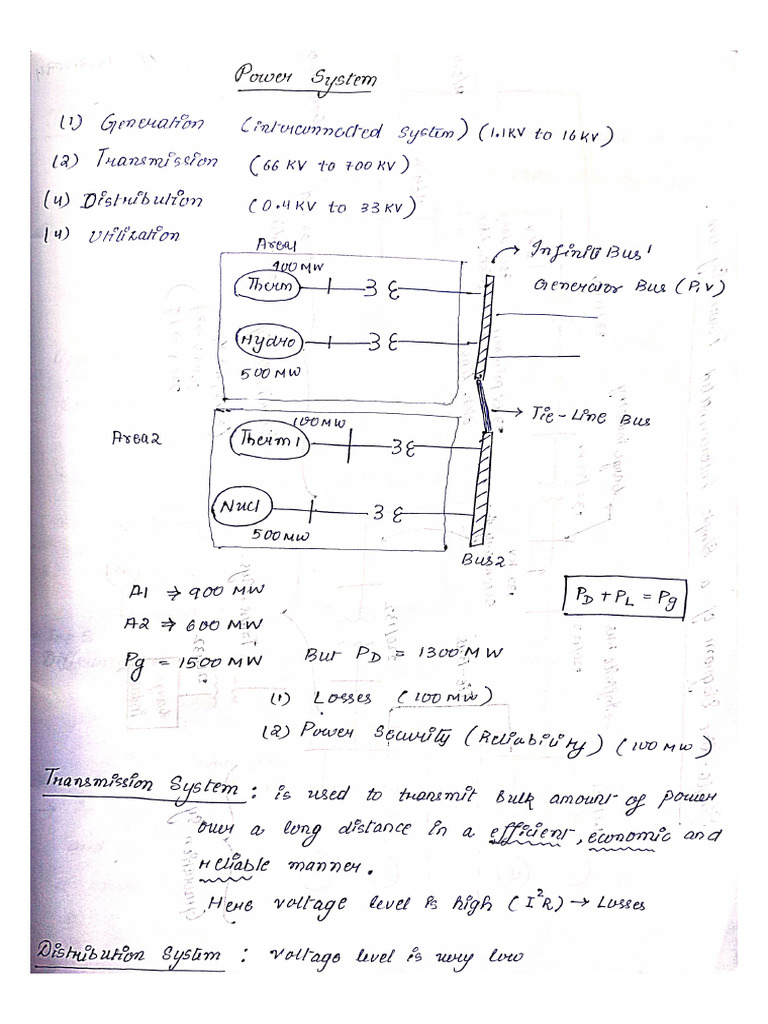 Power System
(1) Generation (interconnected system) (1.1KV to 16KV)
(2) Transmission (66 KV to 700 KV)
(4) Distribution (0.4 KV to 33 KV)
(4) Utilization
Area1
400 MW
Therm
Hydro
500 MW
Infinite Bus 1
Generator Bus (P,V)
Tie-Line Bus
Area2
100MW
Therm 1
Nucl
500 MW
Bus2
A1 ⇒ 900 MW
A2 ⇒ 600 MW
Pg = 1500 MW But PD = 1300 MW
PD + PL = Pg
(1) Losses (100 MW)
(2) Power Security (Reliability) (100 MW)
Transmission System : is used to transmit Bulk amount of power
over a long distance in a efficient, economic and
reliable manner.
Here voltage level is high (I²R) → Losses
Distribution System : voltage level is very low